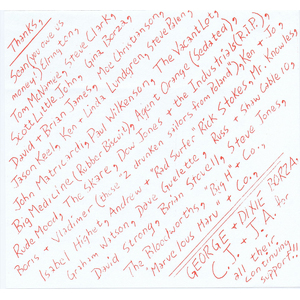 Thanks,
Sean (you owe us
money) Elmsten,
Tom McNamee, Steve Clark,
Scott Little John, Gina Borza,
David + Brian James, Moe Christianson,
Jason Keel, Ken + Linda Lundgren, Steve Palen,
John Matriccardi, Paul Wilkenson, The Vacant Lot,
Big Medicine (Rubber Biscuit), Agent Orange (Sedated),
Rude Mood, The Skare, Dow Jones + the Industrials (R.I.P.),
Boris + Vladimer (those 2 drunken sailors from Poland), Ken + Jo,
Isabel Highet, Andrew + "Rad Surfer" Rick Stokes, Mr. Knowles,
Graham Watson, Dave Guelette, Russ + Shaw Cable 10,
David Strong, Brian Streull, Steve Jones,
The Bloodworths, "Big H" + Co.,
"Marvelous Marv" + Co.,
GEORGE + DINE PORZA,
C.J. + J.A. for
all their
continuing
support!!